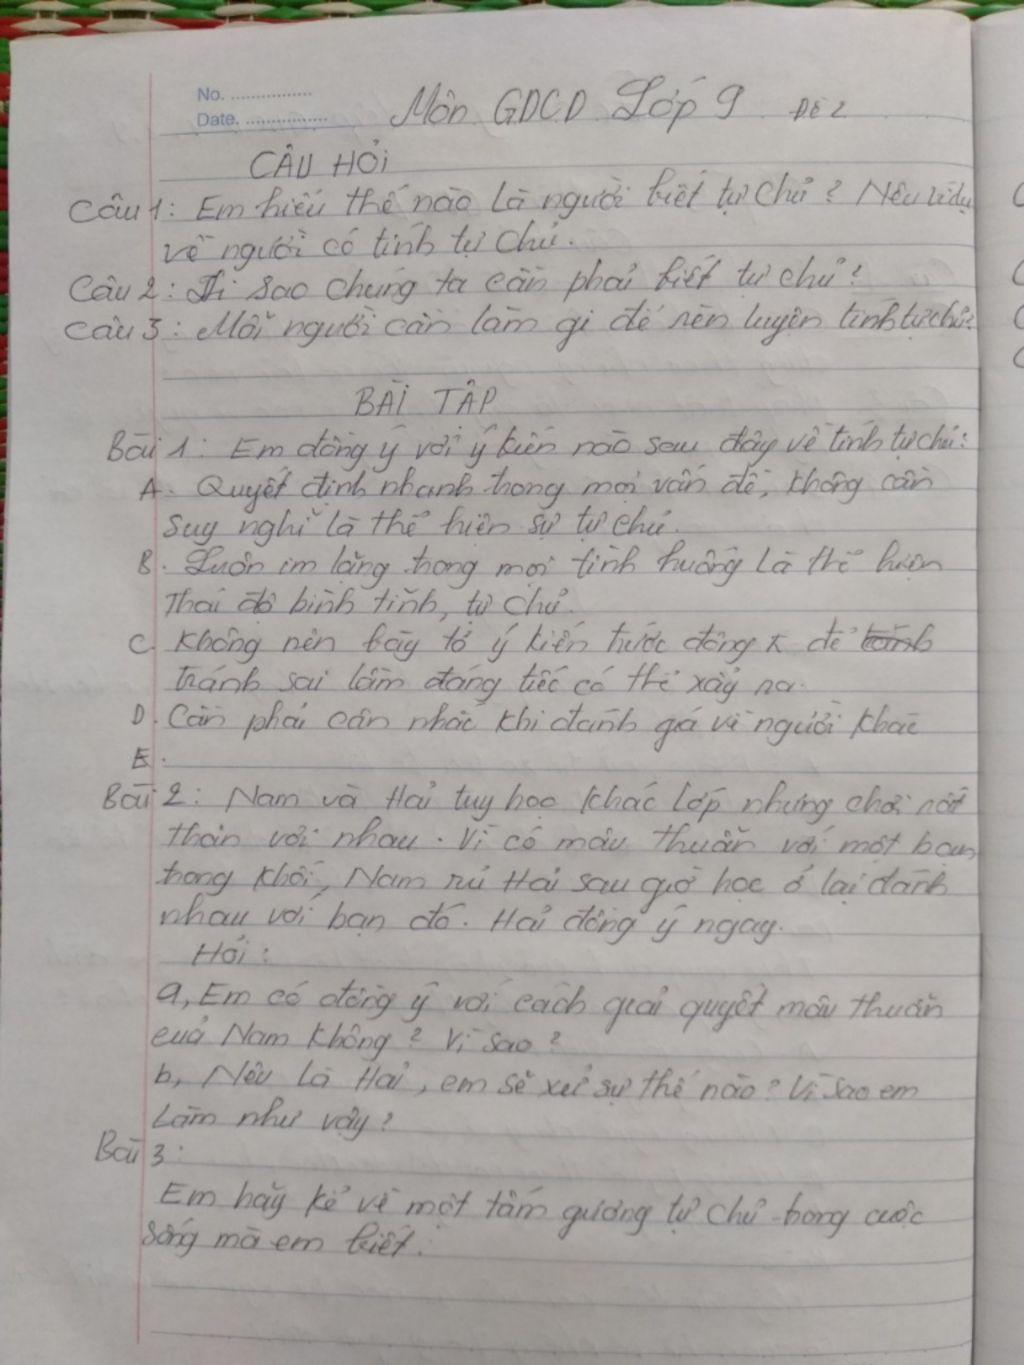 No. ................
Date. ................
Môn GDCD Lớp 9 ĐỀ 2
CÂU HỎI
Câu 1: Em hiểu thế nào là người biết tự chủ? Nêu ví dụ
về người có tính tự chủ.
Câu 2: Vì sao chúng ta cần phải biết tự chủ?
Câu 3: Mỗi người cần làm gì để rèn luyện tính tự chủ?
BÀI TẬP
Bài 1: Em đồng ý với ý kiến nào sau đây về tính tự chủ:
A. Quyết định nhanh trong mọi vấn đề, không cần
suy nghĩ là thể hiện sự tự chủ.
B. Luôn im lặng trong mọi tình huống là thể hiện
Thái độ bình tĩnh, tự chủ.
C. Không nên bày tỏ ý kiến trước đông để
tránh sai lầm đáng tiếc có thể xảy ra.
D. Cần phải cân nhắc khi đánh giá về người khác
E.
Bài 2: Nam và Hải tuy học khác lớp nhưng chơi rất
thân với nhau. Vì có mâu thuẫn với một bạn
trong khối, Nam rủ Hải sau giờ học ở lại đánh
nhau với bạn đó. Hải đồng ý ngay.
Hỏi:
a, Em có đồng ý với cách giải quyết mâu thuẫn
của Nam không? Vì sao?
b, Nếu là Hải, em sẽ xử sự thế nào? Vì sao em
Làm như vậy?
Bài 3:
Em hãy kể về một tấm gương tự chủ trong cuộc
sống mà em biết.